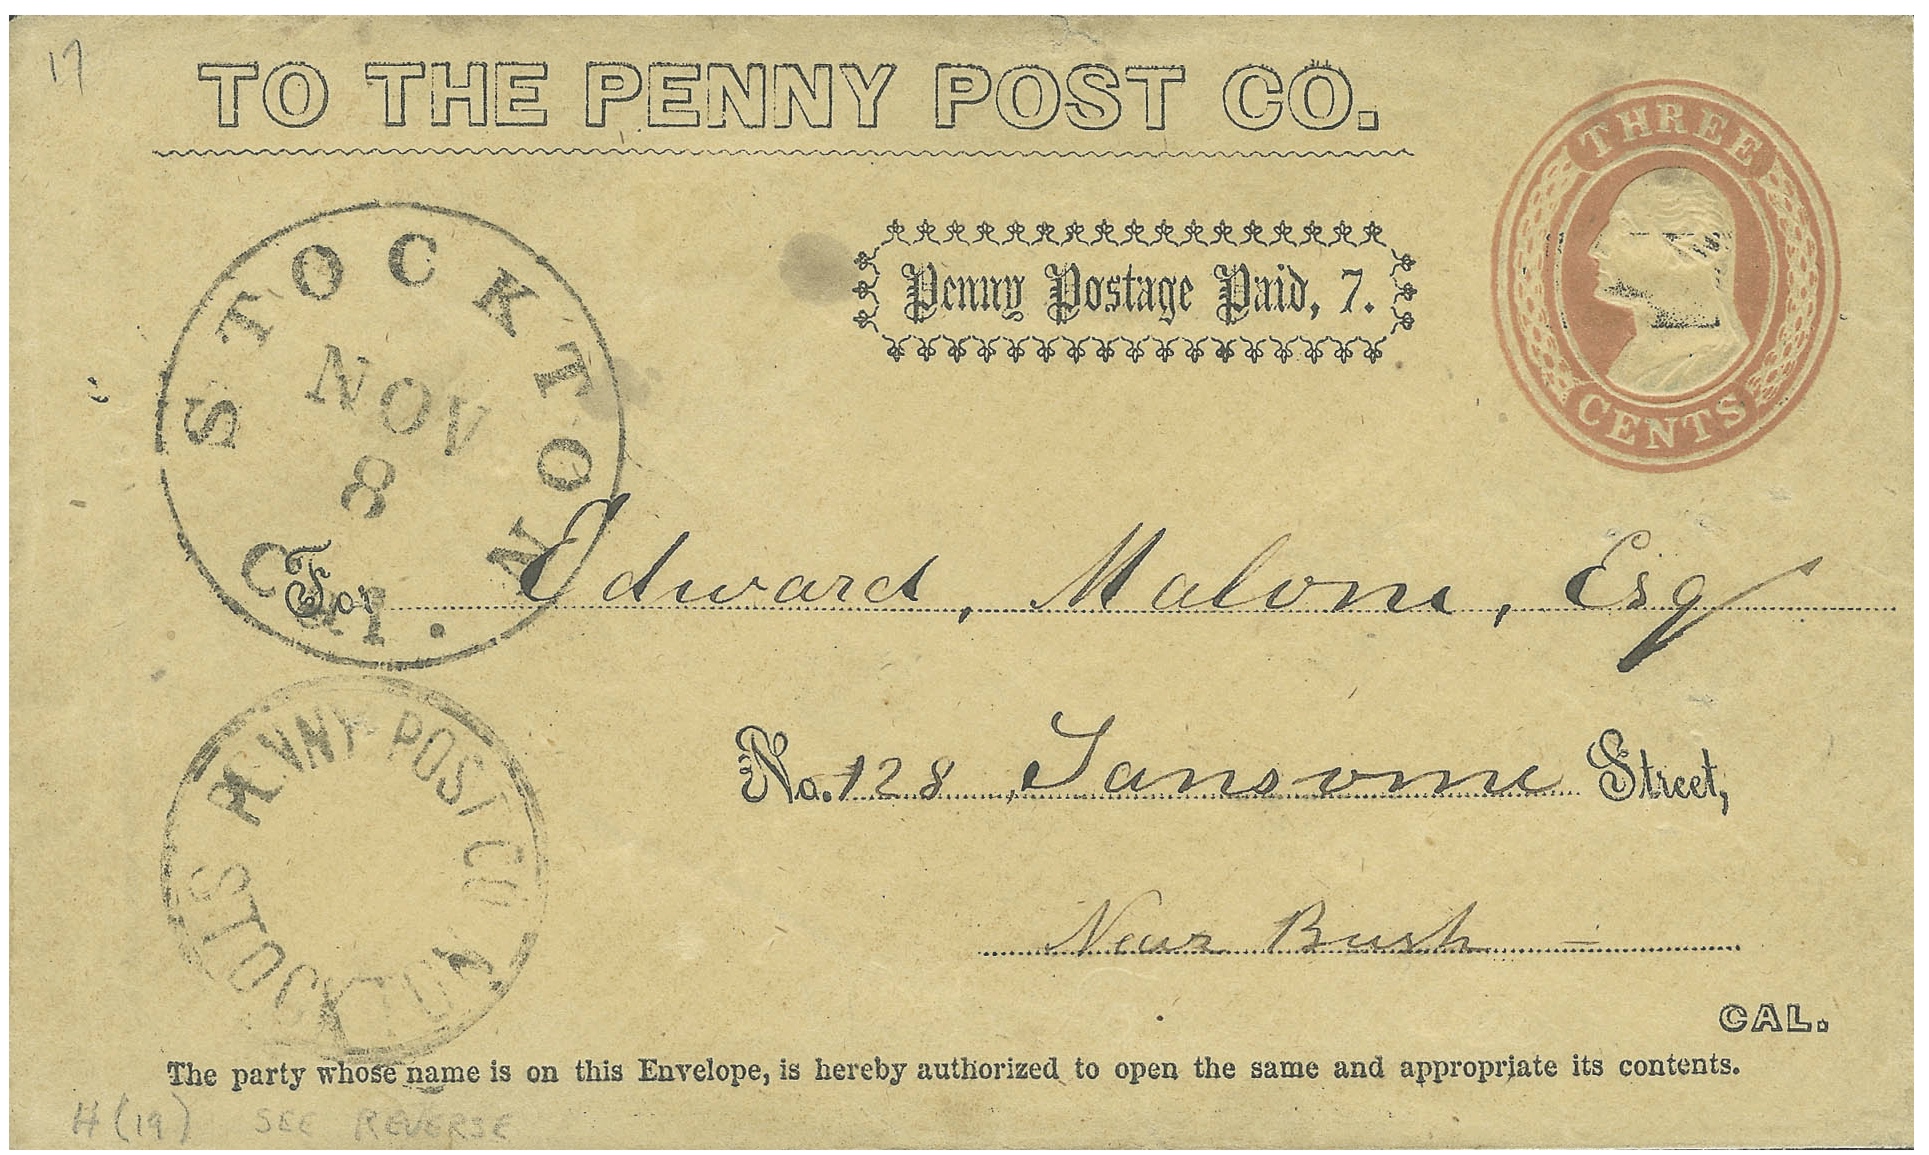 17
TO THE PENNY POST CO.
THREE
CENTS
Penny Postage Paid, 7.
STOCKTON
NOV
8
CAL.
For Edward, Malone, Esq
PENNY POST CO.
STOCKTON
No. 128 Sansome Street,
Near Bush –
CAL.
The party whose name is on this Envelope, is hereby authorized to open the same and appropriate its contents.
H (19) SEE REVERSE